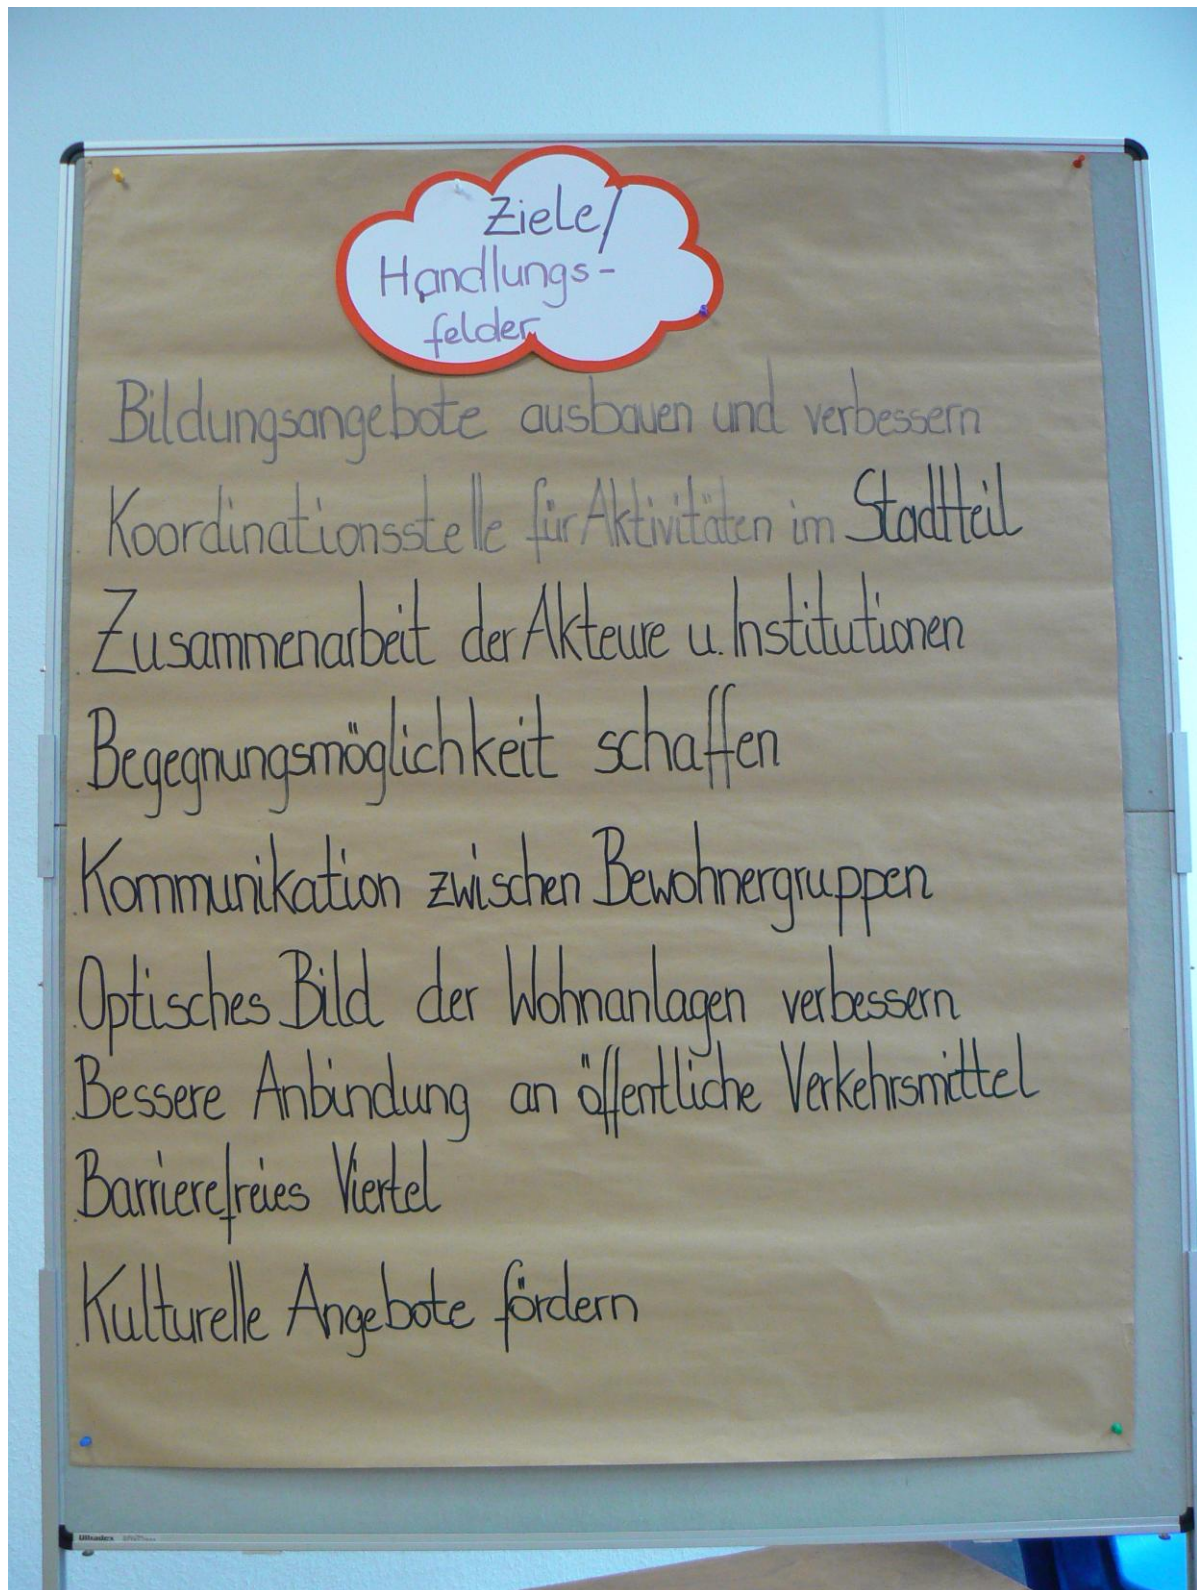 Ziele/
Handlungs-
felder
. Bildungsangebote ausbauen und verbessern
. Koordinationsstelle für Aktivitäten im Stadtteil
. Zusammenarbeit der Akteure u. Institutionen
. Begegnungsmöglichkeit schaffen
. Kommunikation zwischen Bewohnergruppen
. Optisches Bild der Wohnanlagen verbessern
. Bessere Anbindung an öffentliche Verkehrsmittel
. Barrierefreies Viertel
. Kulturelle Angebote fördern
Ultradex